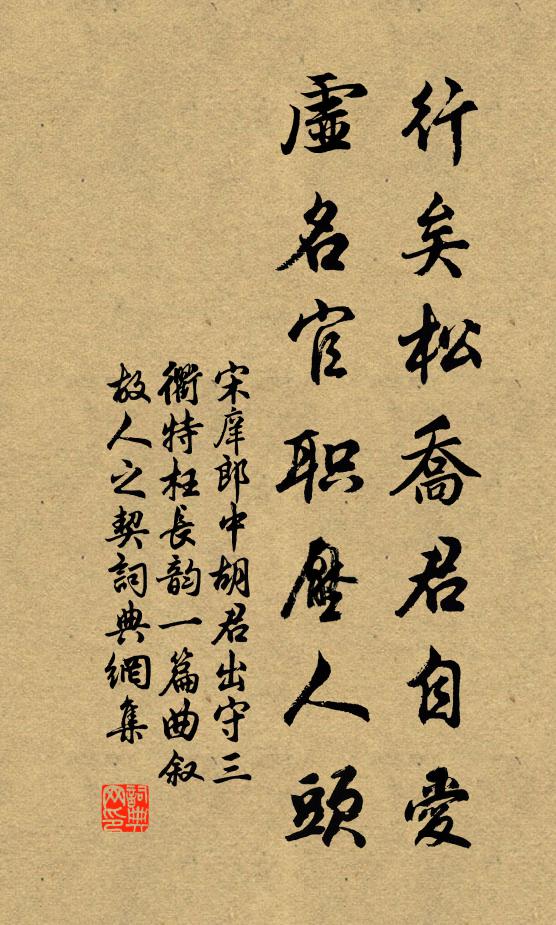 行矣松喬君自愛
虛名官职壓人頭
宋庠郎中胡君出守三
衢特枉長韵一篇曲叙
故人之契詞典網集
詞典网印